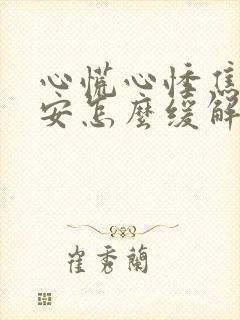 心慌心悸焦
安怎麼缓解
崔秀蘭